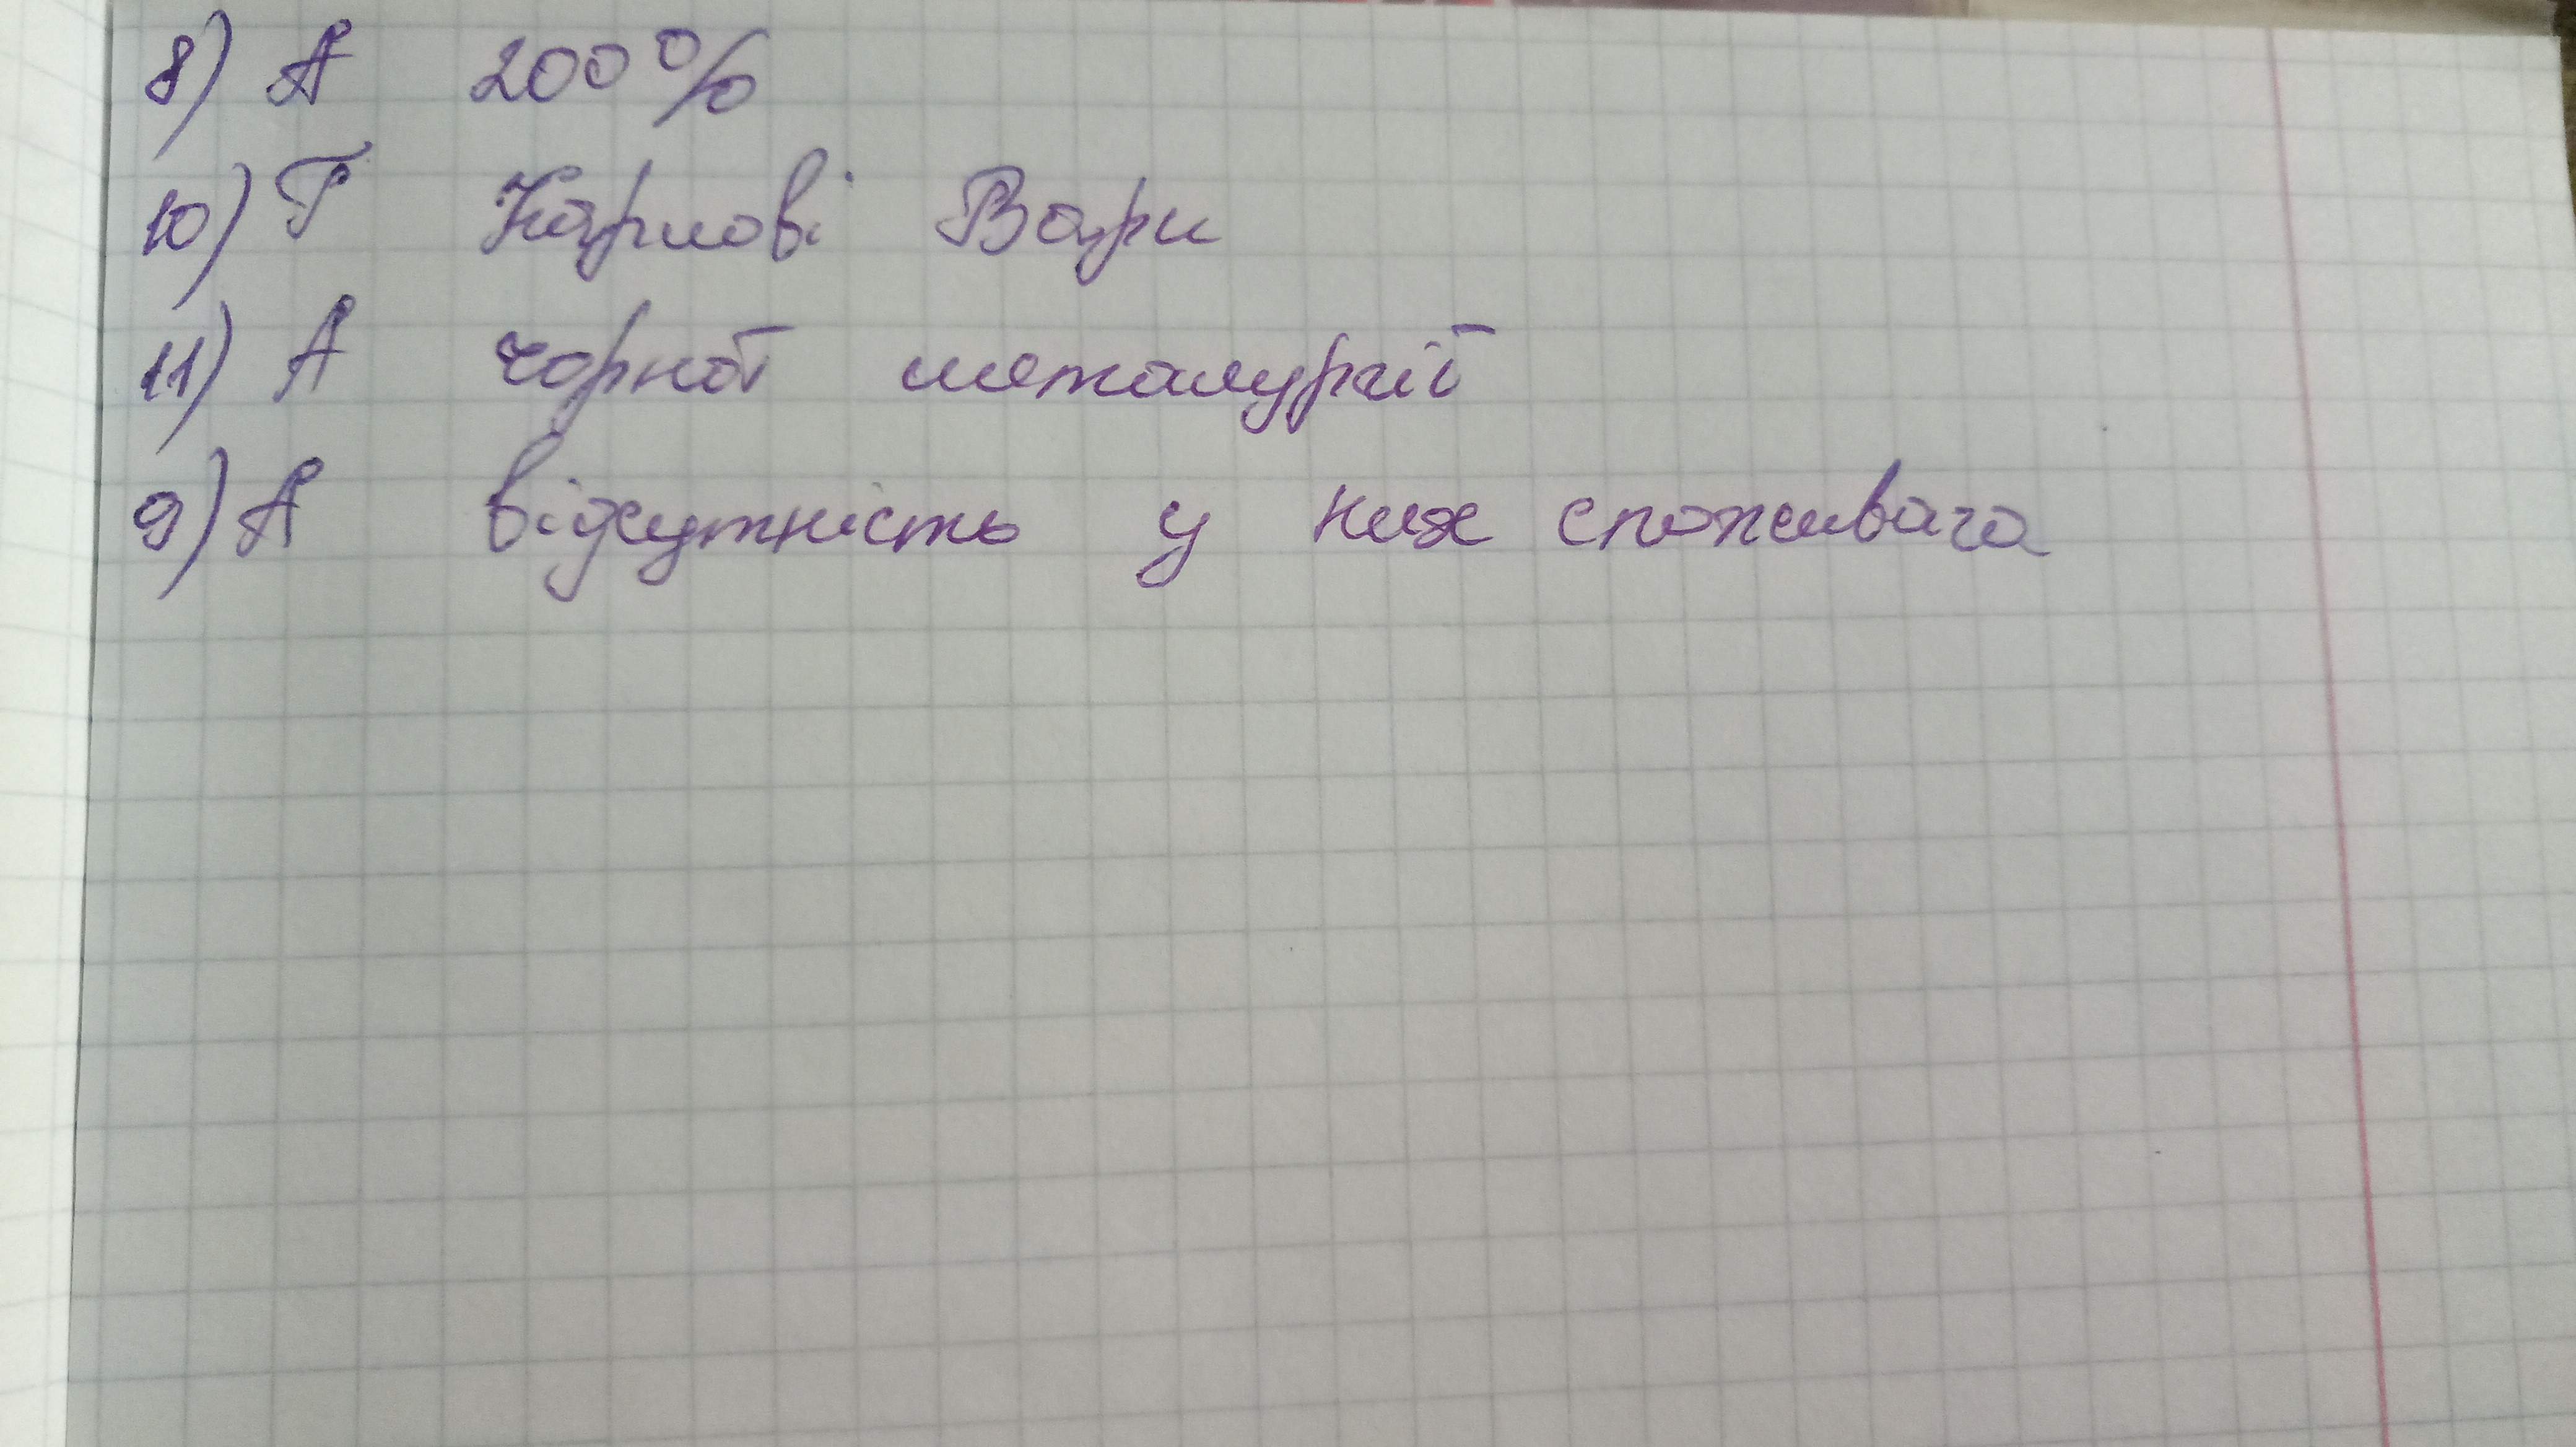 8) А 200%
10) Г Карлові Вари
11) А чорної металургії
9) А відсутність у них споживача